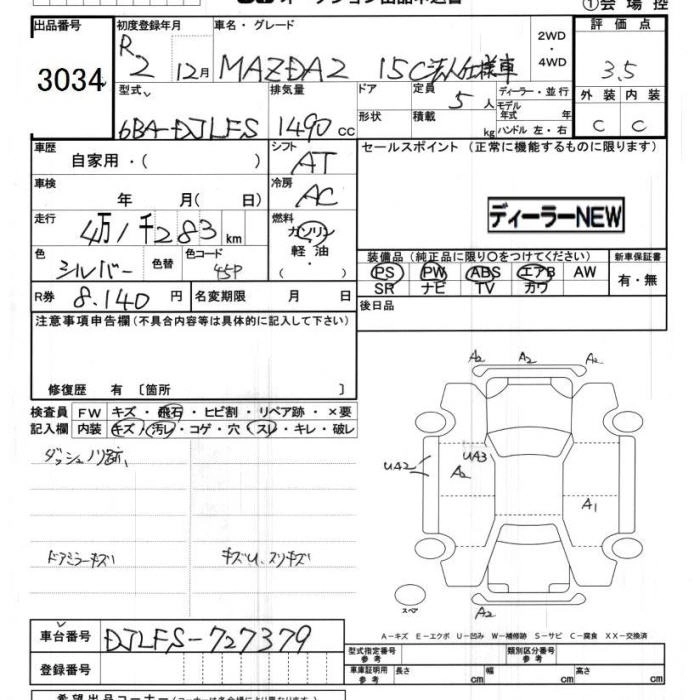 ①会場控
出品番号
3034
初度登録年月
R2 12月
車名・グレード
MAZDA2 15C法人仕様車
2WD
・
4WD
評価点
3.5
型式
6BA-DJLFS
排気量
1490 cc
ドア
定員
5 人
ディーラー・並行
モデル
年式 年
形状
積載
kg
ハンドル 左・右
外装
内装
C
C
車歴
自家用・( )
シフト
AT
セールスポイント (正常に機能するものに限ります)
車検
年 月( 日)
冷房
AC
ディーラーNEW
走行
4万1千283 km
燃料
ガソリン
軽油
・
色
シルバー
色替
色コード
45P
装備品 (純正品に限り○をつけてください)
新車保証書
PS PW ABS エアB AW
SR ナビ TV カワ
有・無
R券
8.140 円
名変期限 月 日
後日品
注意事項申告欄 (不具合内容等は具体的に記入して下さい)
修復歴 有 〔箇所 〕
検査員
記入欄
FW キズ・飛石・ヒビ割・リペア跡・×要
内装 キズ・汚レ・コゲ・穴・スレ・キレ・破レ
ダッシュノリ跡、
ドアミラーキズ
キズU、スリキズ
A2 A2 A2
UA2
UA3
A2
A1
スペア
A2
A−キズ E−エクボ U−凹み W−補修跡 S−サビ C−腐食 XX−交換済
車台番号
DJLFS-727379
登録番号
型式指定番号
参考
類別区分番号
参考
車庫証明用
参考
長さ cm
幅 cm
高さ cm
希望出品コーナー